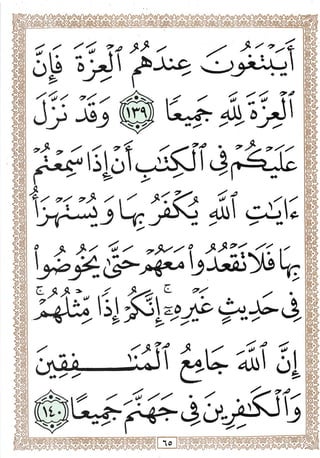 أَيَبْتَغُونَ عِندَهُمُ ٱلْعِزَّةَ فَإِنَّ
ٱلْعِزَّةَ لِلَّهِ جَمِيعًا ١٣٩ وَقَدْ نَزَّلَ
عَلَيْكُمْ فِي ٱلْكِتَٰبِ أَنْ إِذَا سَمِعْتُمْ
ءَايَٰتِ ٱللَّهِ يُكْفَرُ بِهَا وَيُسْتَهْزَأُ
بِهَا فَلَا تَقْعُدُوا۟ مَعَهُمْ حَتَّىٰ يَخُوضُوا۟
فِي حَدِيثٍ غَيْرِهِۦٓ ۚ إِنَّكُمْ إِذًا مِّثْلُهُمْ ۗ
إِنَّ ٱللَّهَ جَامِعُ ٱلْمُنَٰفِقِينَ
وَٱلْكَٰفِرِينَ فِي جَهَنَّمَ جَمِيعًا ١٤٠
٦٥